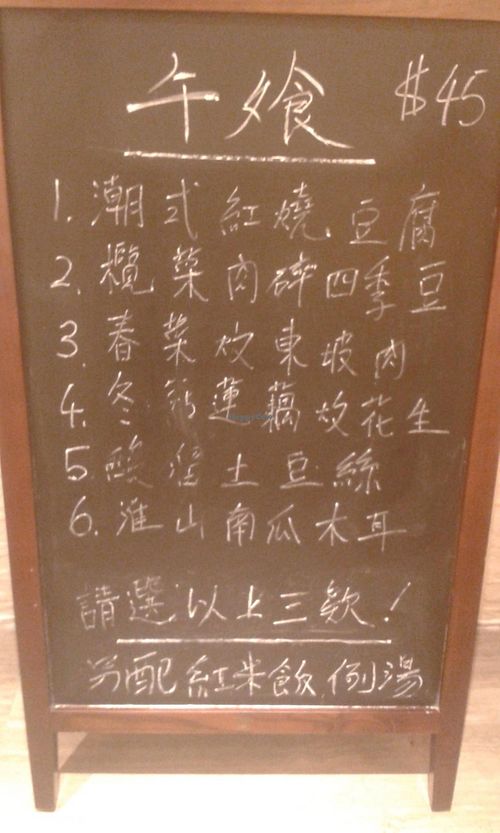 午飧 $45
1. 潮式紅燒豆腐
2. 欖菜肉碎四季豆
3. 春菜炆東坡肉
4. 冬蓮藕炆花生
5. 酸溜土豆絲
6. 淮山南瓜木耳
請選以上三款！
另配紅米飯,例湯